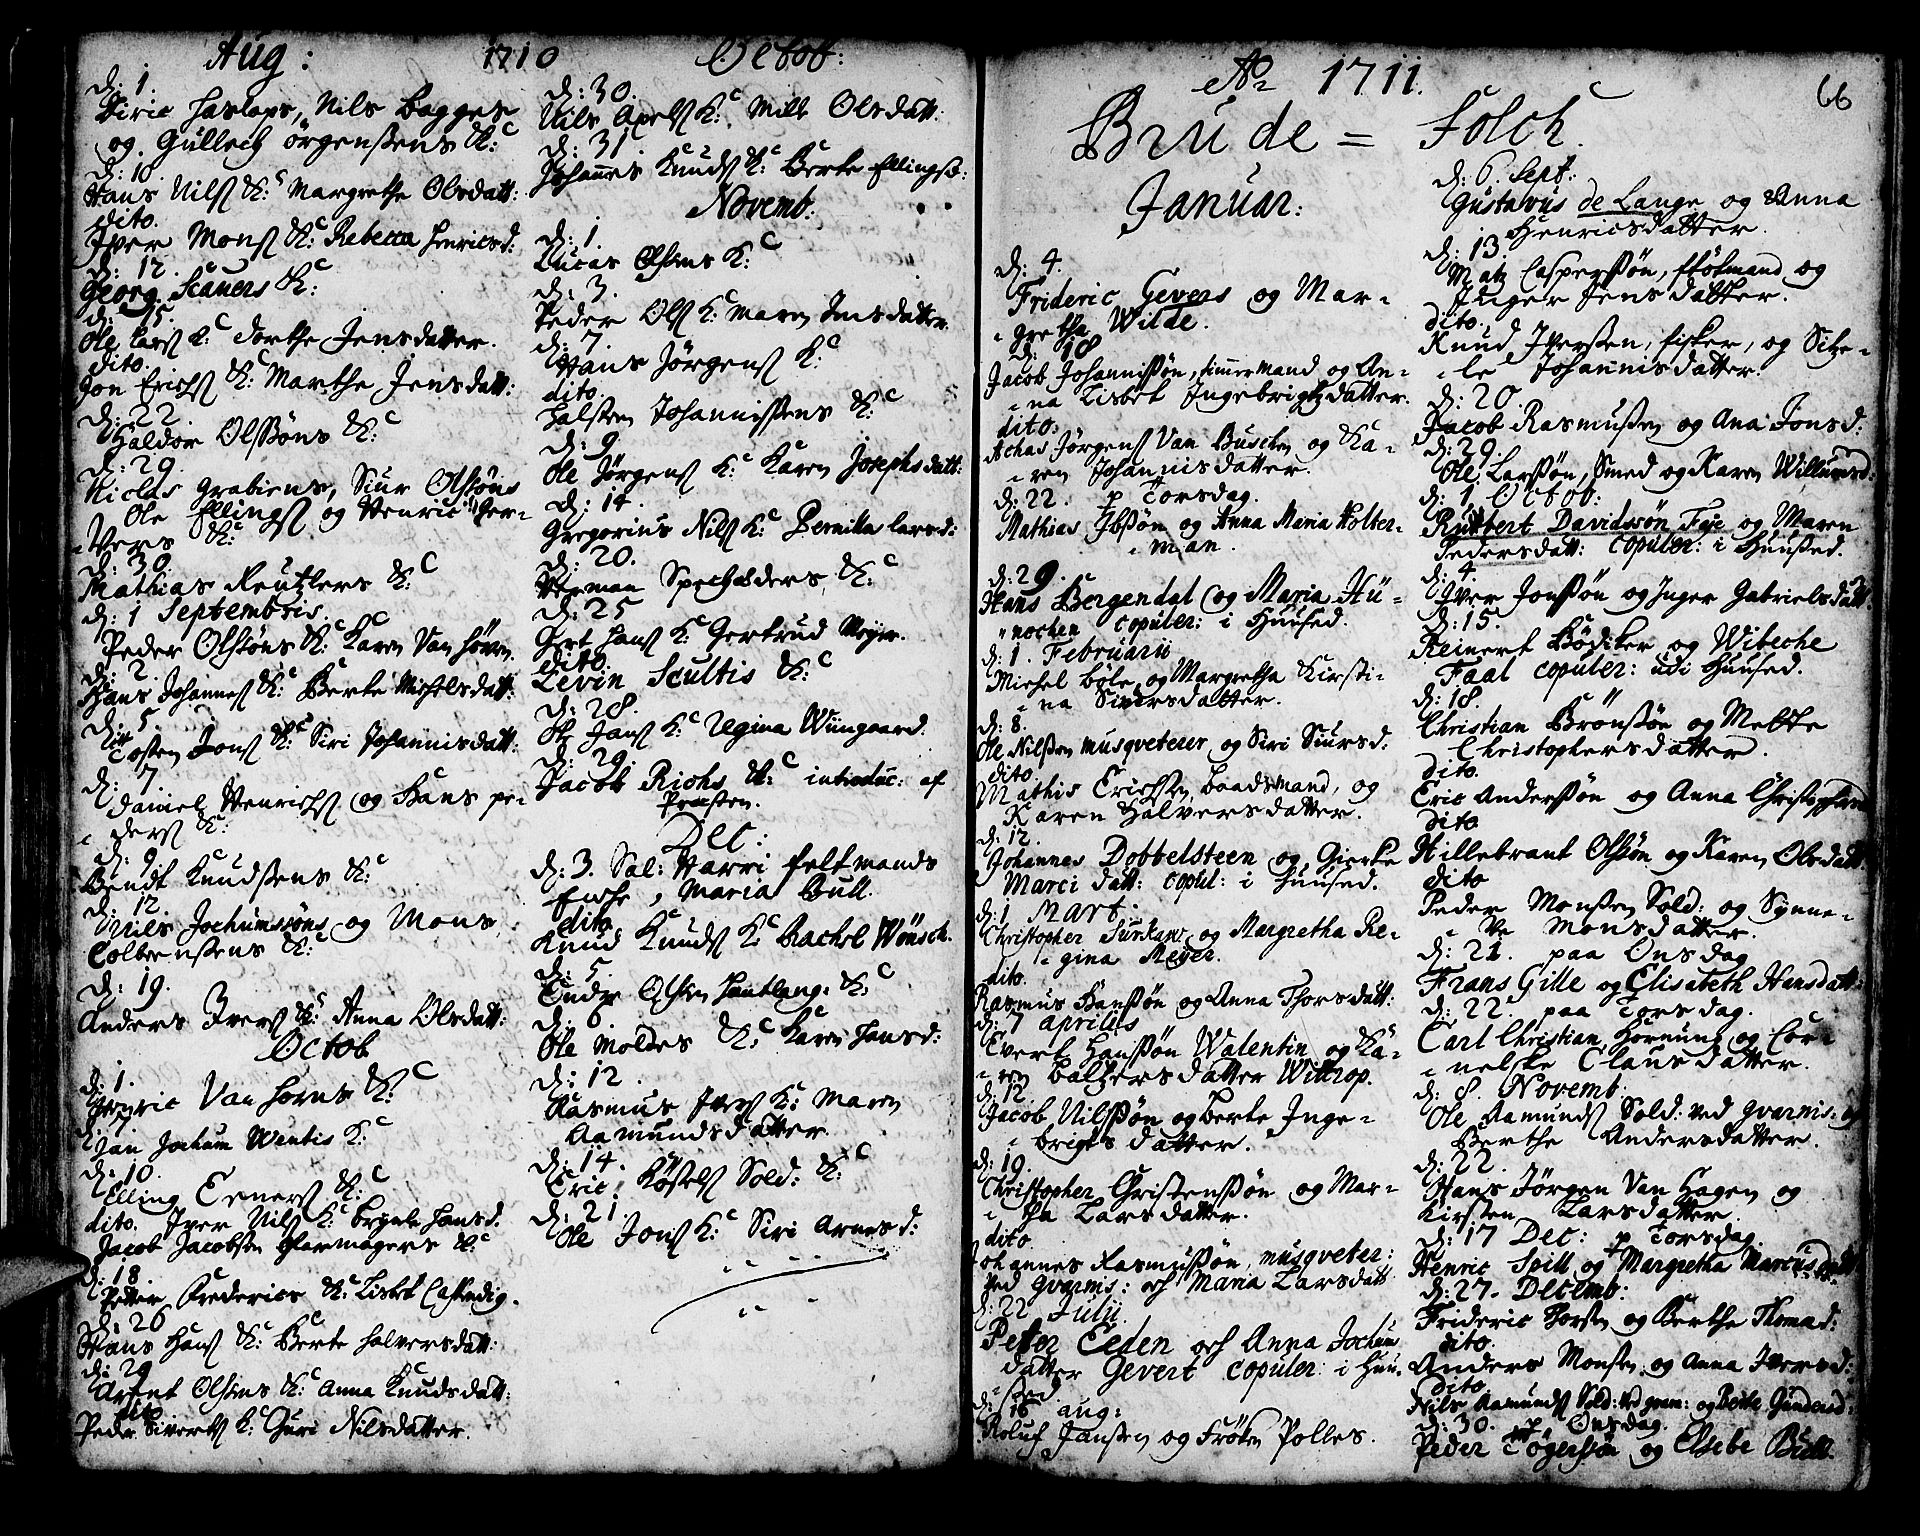 Aug: 1710
d: 1.
Diric Haslops, Nils Bagges
og Gullech örgenßens K:c
d: 10
Hans Nilss K:c Margrethe Olsdatt:
dito.
Iver Monss K:c Rebecca Henricsd:
d: 12.
Georg Scauers K:c
d: 15.
Ole Larss K:c Dorthe Jensdatter.
dito.
Jon Erichss K:c Marthe Jensdatt:
d: 22.
Haldor Olssöns K:c
d: 29.
Niclas Grabiens, Siur Olssöns
Ole Ellingss og Henric Ger-
-vers K:c
d: 30.
Mathias Reutzlers K:c
d: 1 Septembris.
Peder Olssöns K:c Karen Van Hoven.
d: 2.
Hans Johanness K:c Berte Michelsdatt:
d: 5.
Tosten Jonss K:c Siri Johannisdatt:
d: 7.
Daniel Henrichss og Hans pe-
derss K:c
d: 9.
Bendt Knudßens K:c
d: 12.
Nils Jochumsöns og Mons
Colbenßens K:c
d: 19.
Anders Iverss K:c Anna Olsdatt:
Octob
d: 1.
Henric Van Horns K:c
d: 7.
Jan Jochum Wentis K:c
d: 10
Elling Eenerss K:c
dito. Iver Nilss K:c Brynle Hansd.
Jacob Jacobsen Glarmagers K:c
d: 18.
Petter Frederics K:c Lisbet Castendig.
d: 26
Hans Hanss K:c Berte Halversdatt:
d: 29
Arent Olsens K:c Anna Knudsdatt:
dito
Peder Sivertss K:c Guri Nilsdatter.
Octob:
d: 30.
Nils Axelss K:c Mill Olsdatt:
d: 31.
Johannes Knudss K:c Berte Ellingsd:
Novemb:
d: 1.
Lucas Olsens K:c
d: 3.
Peder Olss K: Maren Jensdatter.
d: 7.
Hans Jörgenss K:c
dito.
Halsten Johannissens K:c
d: 9
Ole Jörgenss K:c Karen Josephsdatt:
d: 14.
Gregorius Nilss K:c Pernilla Larsd:
d: 20.
Herman Specholders K:c
d: 25
Gert Hanss K:c Gertrud Meyer.
dito.
Levin Scultis K:c
d: 28.
Ole Janss K:c Regina Wiingaard.
d: 29.
Jacob Richs K:c introduc: af
Præsten.
Dec:
d: 3. Sal: Harri Feltmands
Enche, Maria Bull.
dito.
Knud Knudss K:c Rachel Wönsch.
d: 5.
Endre Olsen Hautlang: K:c
d: 6.
Ole Moldes K:c Karen Hansd:
d: 12.
Rasmus Iverss K:c Maren
Aamundsdatter.
d: 14.
Eric Kösels Sold: K:c
d: 21.
Ole Jonss K:c Siri Arnesd:
Ao 1711.
66
Brude = Folch.
Januar:
d: 4.
Frideric Gevers og Mar-
gretha Wilde.
d: 18
Jacob Johannißön, timmermand og An-
na Lisbet Ingebrigtzdatter.
dito:
Achas Jörgenss Van Buschen og Ka-
ren Johannisdatter.
d: 22. p Torsdag.
Mathias Ibßön og Anna Maria Holter-
man.
d: 29.
Hans Bergendal og Maria Hü-
nochen copuler: i Huused.
d: 1. Februarii
Michel Böle og Margretha Kirsti-
na Siversdatter.
d: 8.
Ole Nilßen musqveterer og Siri Siursd.
dito.
Mathis Erichsen Baadsmand, og
Karen Halversdatter.
d: 12.
Johannes Dobbelsteen og Gierke
Marci datt: copul: i Huused.
d: 1 Mart.
Christopher Surkaw og Margretha Re-
gina Meyer.
dito.
Rasmus Hanßön og Anna Thorsdatt:
d: 7 aprilis
Evert Hanßön Walentin og Ka-
ren Baltzersdatter Wittrop.
d: 12
Jacob Nilßön og Berte Inge-
brigtsdatter.
d: 19.
Christopher Christenßön og Mar-
tha Larsdatter.
dito
Johannes Rasmußön, musqveter:
ved gvarnis: och Maria Larsdatt
d: 22 Julii.
Peter Eeden och Anna Jochum
datter Gevert copuler: i Huu-
sed
d: 16 aug:
Roluf Janßen og Fröken Polles.
d: 6. Sept:
Gustavus de Lange og Anna
Henricsdatter.
d: 13.
Matz Casperßön, flötmand og
Inger Jensdatter.
dito.
Knud Iverßen, fisker, og Sitze-
le Johannisdatter.
d: 20.
Jacob Rasmußen og Ana Jonsd:
d: 29.
Ole Larßön, Smed og Karen Willumsd:
d: 1. Octob:
Rutbert Davidssön Faye og Maren
Pedersdatt: copuler: i Huused.
d: 4.
Iver Jonßön og Inger Gabrielsdatt.
d: 15.
Reinert Bödiker og Wibeche
Faal copuler: udi Huused.
d: 18.
Christian Brönßön og Mette
Christophersdatter.
dito.
Eric Anderßön og Anna Christophersd
dito
Hillebrant Olssön og Karen Olsdatt
dito
Peder Monßen Sold: og Synne-
ve Monsdatter.
d: 21. paa Onsdag
Frans Gille og Elisabeth Hansdatt:
d: 22. paa Torsdag.
Carl Christian Hornung og Cor-
nelske Clausdatter.
d: 8. Novemb:
Ole Aamundss Sold. ved gvarnis: og
Berthe Andersdatter.
d: 22.
Hans Jörgen Van Hagen og
Kirsten Larsdatter.
d: 17 Dec: p Torsdag.
Henric Spill og Margretha Marcusdatt
d: 27. Decemb:
Frideric Thorsen og Berthe Thomad:
dito.
Anders Monsen og Anna Iversd:
dito
Nils Aamundss Sold: ved gvarn: og Berte Gundersd:
d: 30. p Onsdag.
Peder Tögerssön og Elsebe Bull.